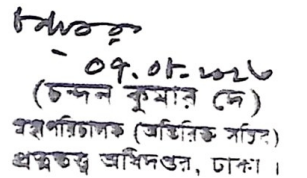 ০৭.০৮.২০২৩
(চন্দন কুমার দে)
মহাপরিচালক (অতিরিক্ত সচিব)
প্রত্নতত্ত্ব অধিদপ্তর, ঢাকা।